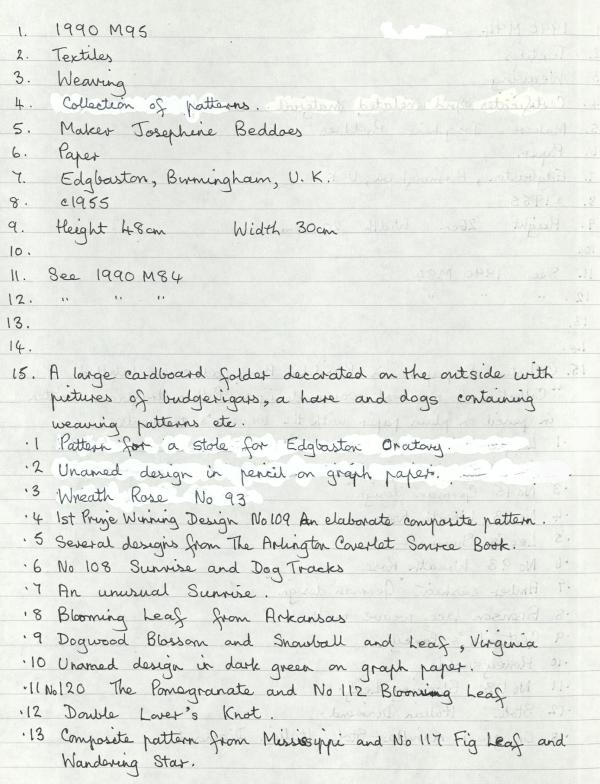 1. 1990 M95
2. Textiles
3. Weaving
4. Collection of patterns.
5. Maker Josephine Beddoes
6. Paper
7. Edgbaston, Birmingham, U.K.
8. c1955
9. Height 48cm Width 30cm
10.
11. See 1990 M84
12. " " "
13.
14.
15. A large cardboard folder decorated on the outside with
pictures of budgerigars, a hare and dogs containing
weaving patterns etc.
·1 Pattern for a stole for Edgbaston Oratory.
·2 Unamed design in pencil on graph paper.
·3 Wreath Rose No 93
·4 1st Prize Winning Design No 109 An elaborate composite pattern.
·5 Several designs from The Arlington Coverlet Source Book.
·6 No 108 Sunrise and Dog Tracks
·7 An unusual Sunrise.
·8 Blooming Leaf from Arkansas
·9 Dogwood Blossom and Snowball and Leaf, Virginia
·10 Unamed design in dark green on graph paper.
·11 No 120 The Pomegranate and No 112 Blooming Leaf
·12 Double Lover's Knot.
·13 Composite pattern from Mississippi and No 117 Fig Leaf and
Wandering Star.